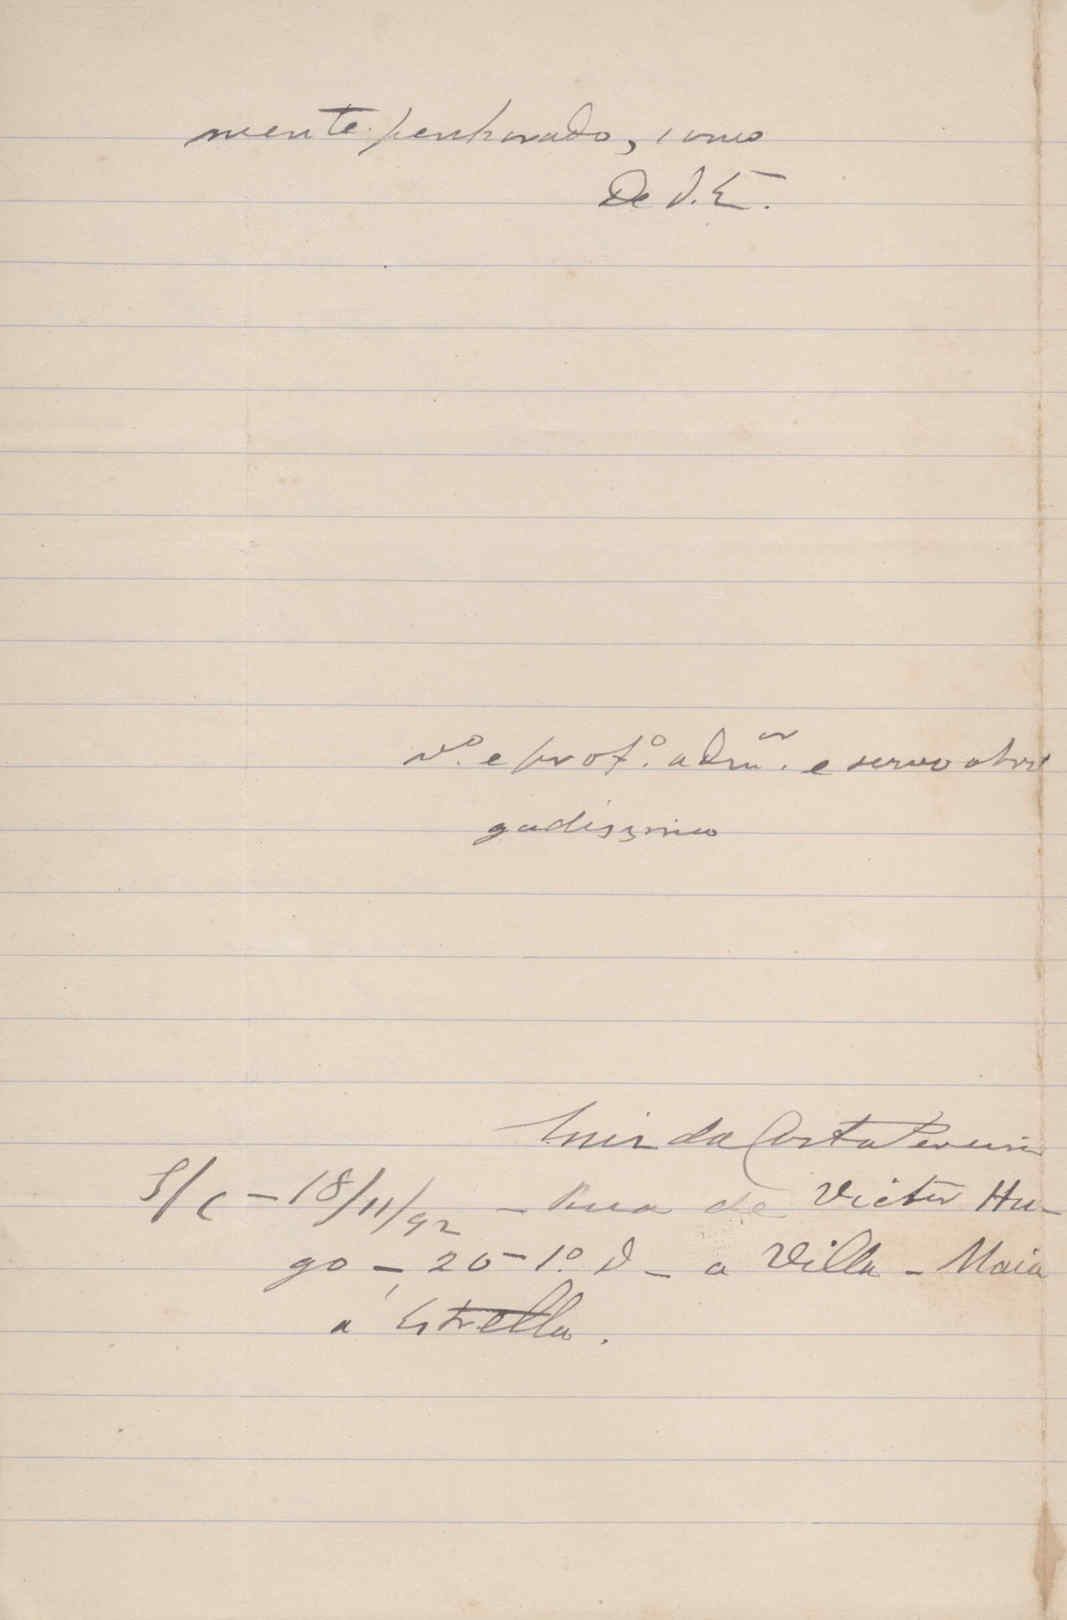 mente penhorado, como
De V. E.
v.º e prof.º adm.ºr e servo obri
gadissimo
Luiz da Costa Pereira
S/C – 18/11/92 – Rua de Victor Hu-
go – 20 – 1.º D – a Villa – Maia
á Estrella.